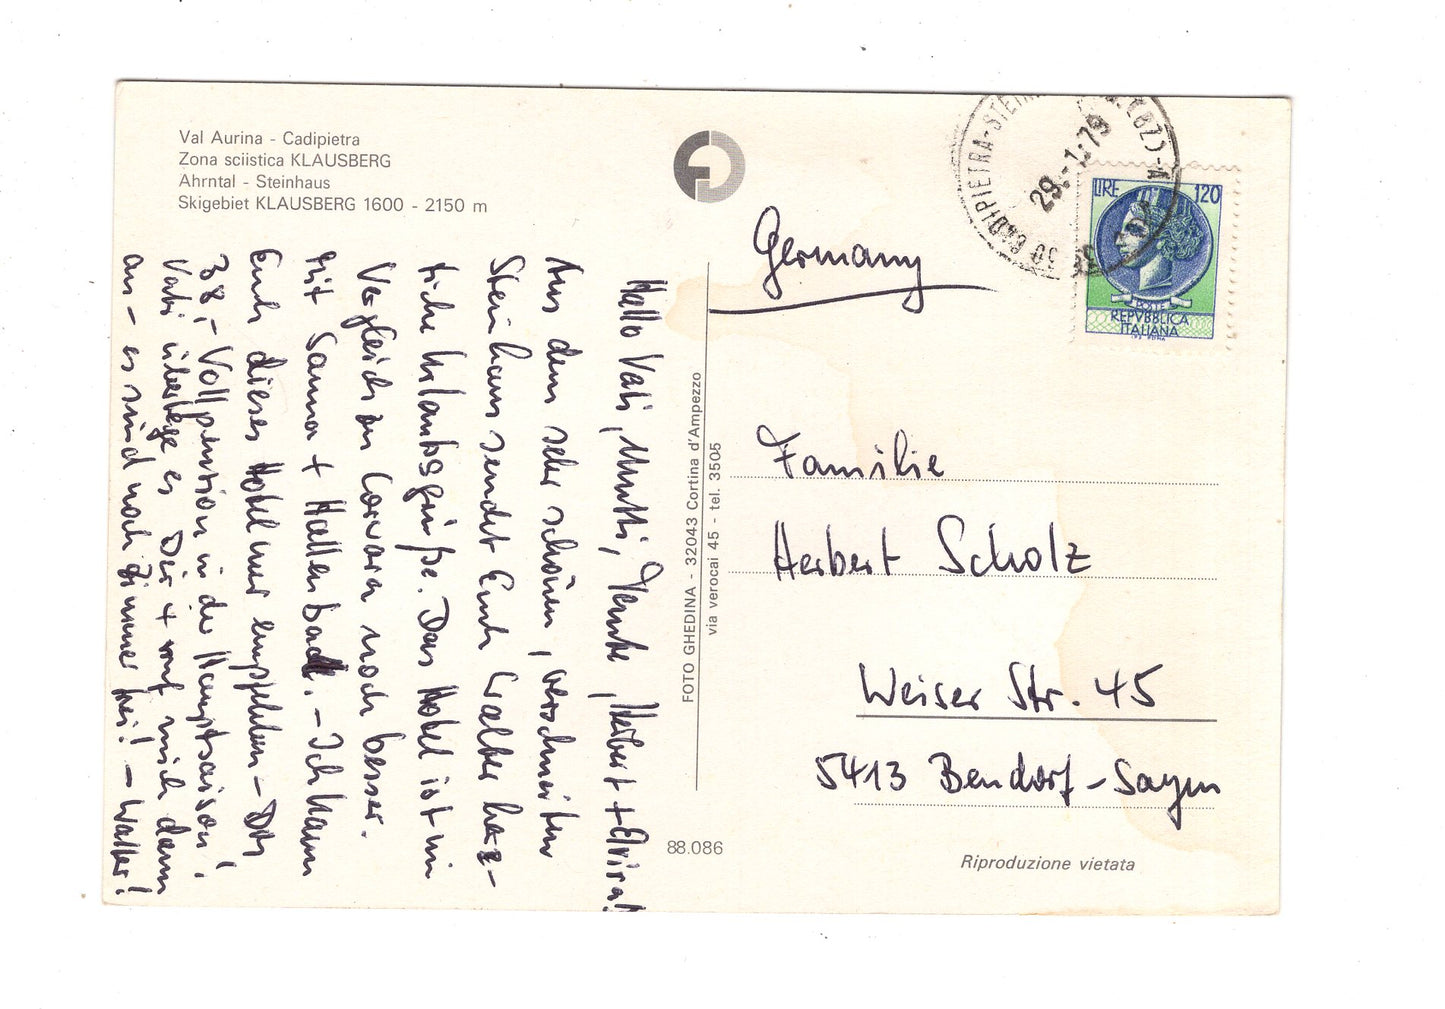 Val Aurina - Cadipietra
Zona sciistica KLAUSBERG
Ahrntal - Steinhaus
Skigebiet KLAUSBERG 1600 - 2150 m
Hallo Vati, Mutti, Tante, Herbert + Elvira!
Aus dem sehr schönen, verschneiten
Steinhaus sendet Euch Walter herz-
liche Urlaubsgrüße. Das Hotel ist im
Vergleich zu Corvara noch besser.
Mit Sauna + Hallenbad. - Ich kann
Euch dieses Hotel nur empfehlen - DM
38,- Vollpension in der Hauptsaison!
Vati überlege es Dir + ruf mich dann
an - es sind noch Zimmer frei! - Walter!
FOTO GHEDINA - 32043 Cortina d'Ampezzo
via verocai 45 - tel. 3505
88.086
CADIPIETRA-STEIN (BZ)-A
29.-1.79
LIRE 120
POSTE
REPVBBLICA
ITALIANA
Germany
Familie
Herbert Scholz
Weiser Str. 45
5413 Bendorf-Sayn
Riproduzione vietata